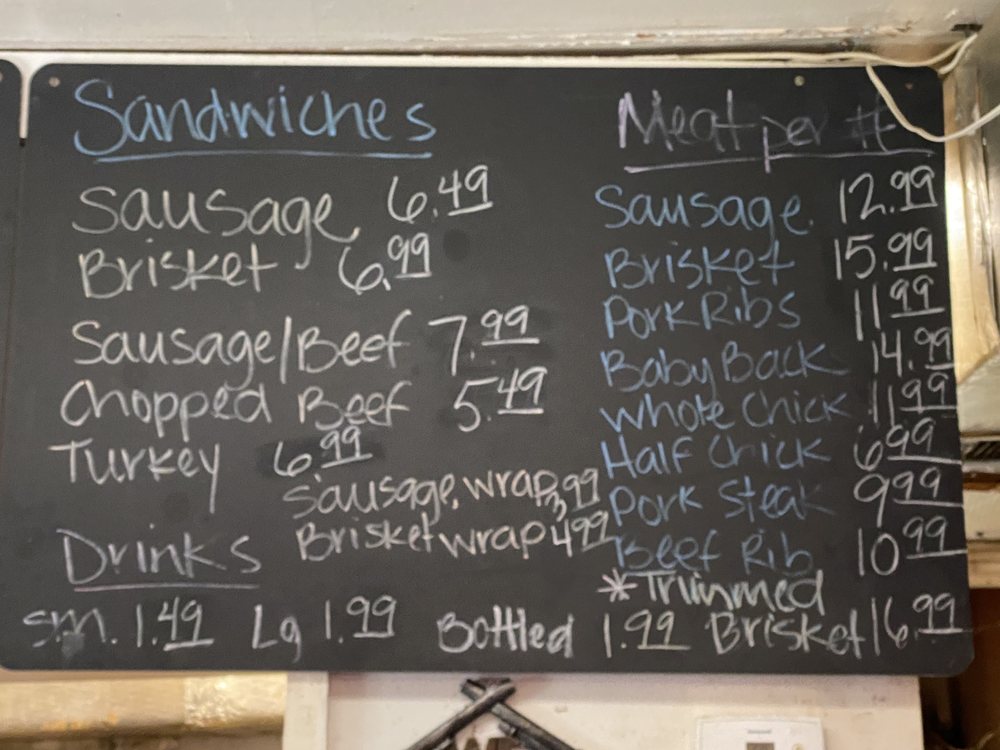 Sandwiches
Sausage 6.49
Brisket 6.99
Sausage/Beef 7.99
Chopped Beef 5.49
Turkey 6.99
Sausage wrap 3.99
Brisket wrap 4.99
Drinks
sm. 1.49 Lg 1.99 Bottled 1.99
Meat per #
Sausage 12.99
Brisket 15.99
Pork Ribs 11.99
Baby Back 14.99
Whole Chick 11.99
Half Chick 6.99
Pork Steak 9.99
Beef Rib 10.99
*Trimmed
Brisket 16.99